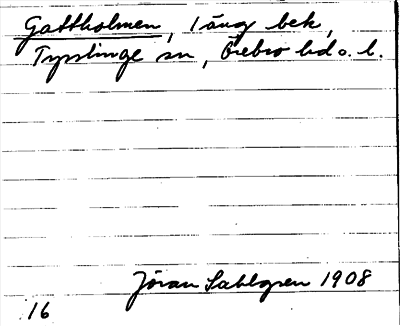 Gattholmen, 1 äng bek,
Tysslinge sn, Örebro hd o. l.
Jöran Sahlgren 1908
16